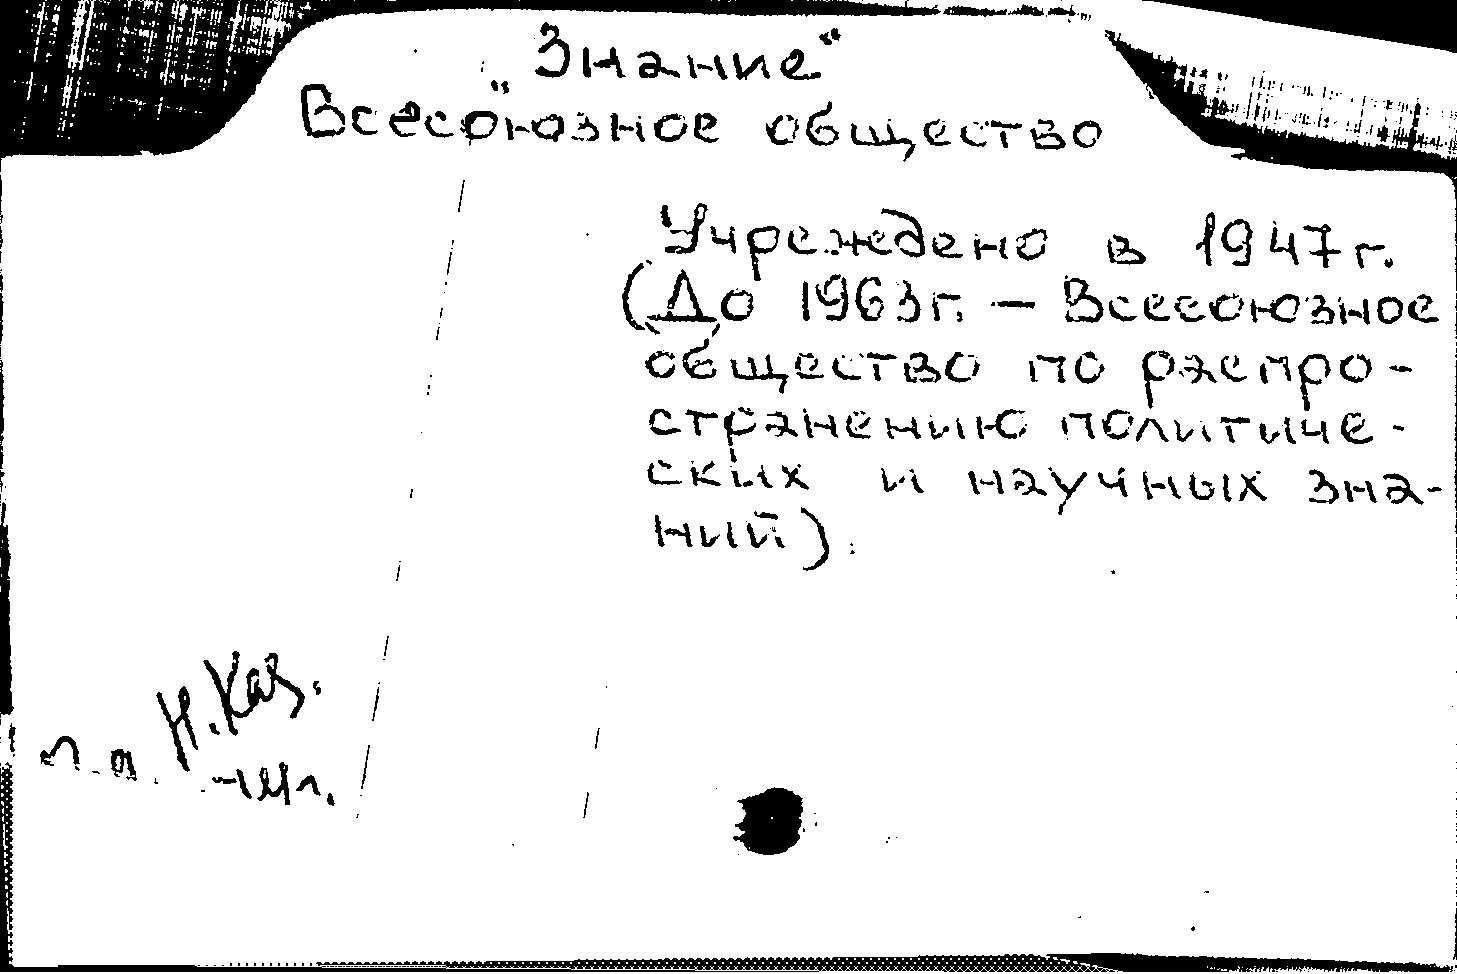 „Знание“
Всесоюзное общество
Учреждено в 1947 г.
(До 1963 г. — Всесоюзное
общество по распро-
странению политиче-
ских и научных зна-
ний).
Н. Каз.
п.а.